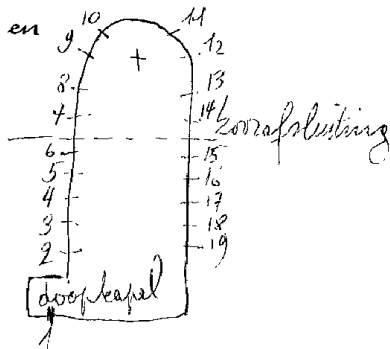 en
10
11
9
12
8
13
7
14
koorafsluiting
6
15
5
16
4
17
3
18
2
19
doopkapel
1